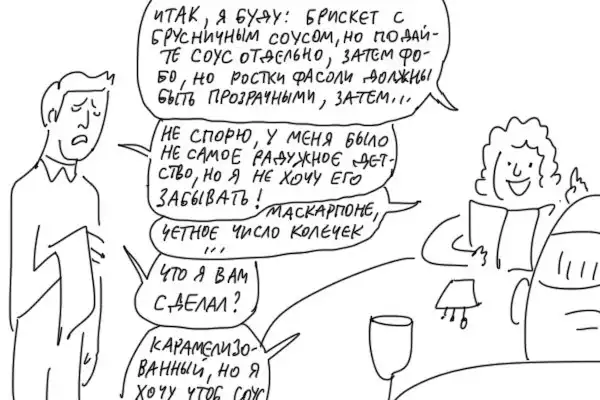 ИТАК, Я БУДУ: БРИСКЕТ С
БРУСНИЧНЫМ СОУСОМ, НО ПОДАЙ-
ТЕ СОУС ОТДЕЛЬНО, ЗАТЕМ ФО-
БО, НО РОСТКИ ФАСОЛИ ДОЛЖНЫ
БЫТЬ ПРОЗРАЧНЫМИ, ЗАТЕМ...
НЕ СПОРЮ, У МЕНЯ БЫЛО
НЕ САМОЕ РАДУЖНОЕ ДЕТ-
СТВО, НО Я НЕ ХОЧУ ЕГО
ЗАБЫВАТЬ!
МАСКАРПОНЕ,
ЧЕТНОЕ ЧИСЛО КОЛЕЧЕК
...
ЧТО Я ВАМ
СДЕЛАЛ?
КАРАМЕЛИЗО-
ВАННЫЙ, НО Я
ХОЧУ ЧТОБ СОУС